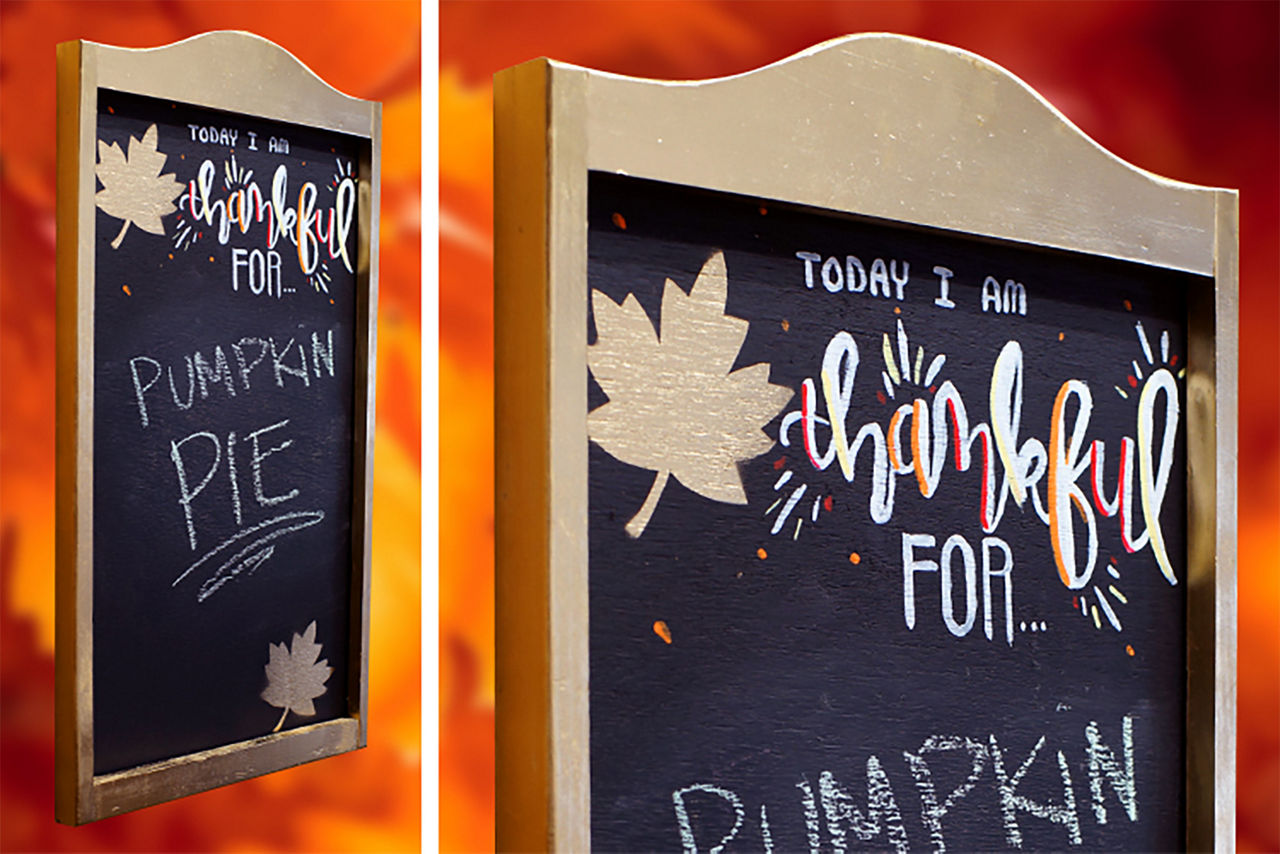 TODAY I AM
thankful
FOR...
PUMPKiN
PIE
TODAY I AM
thankful
FOR...
PUMPKiN